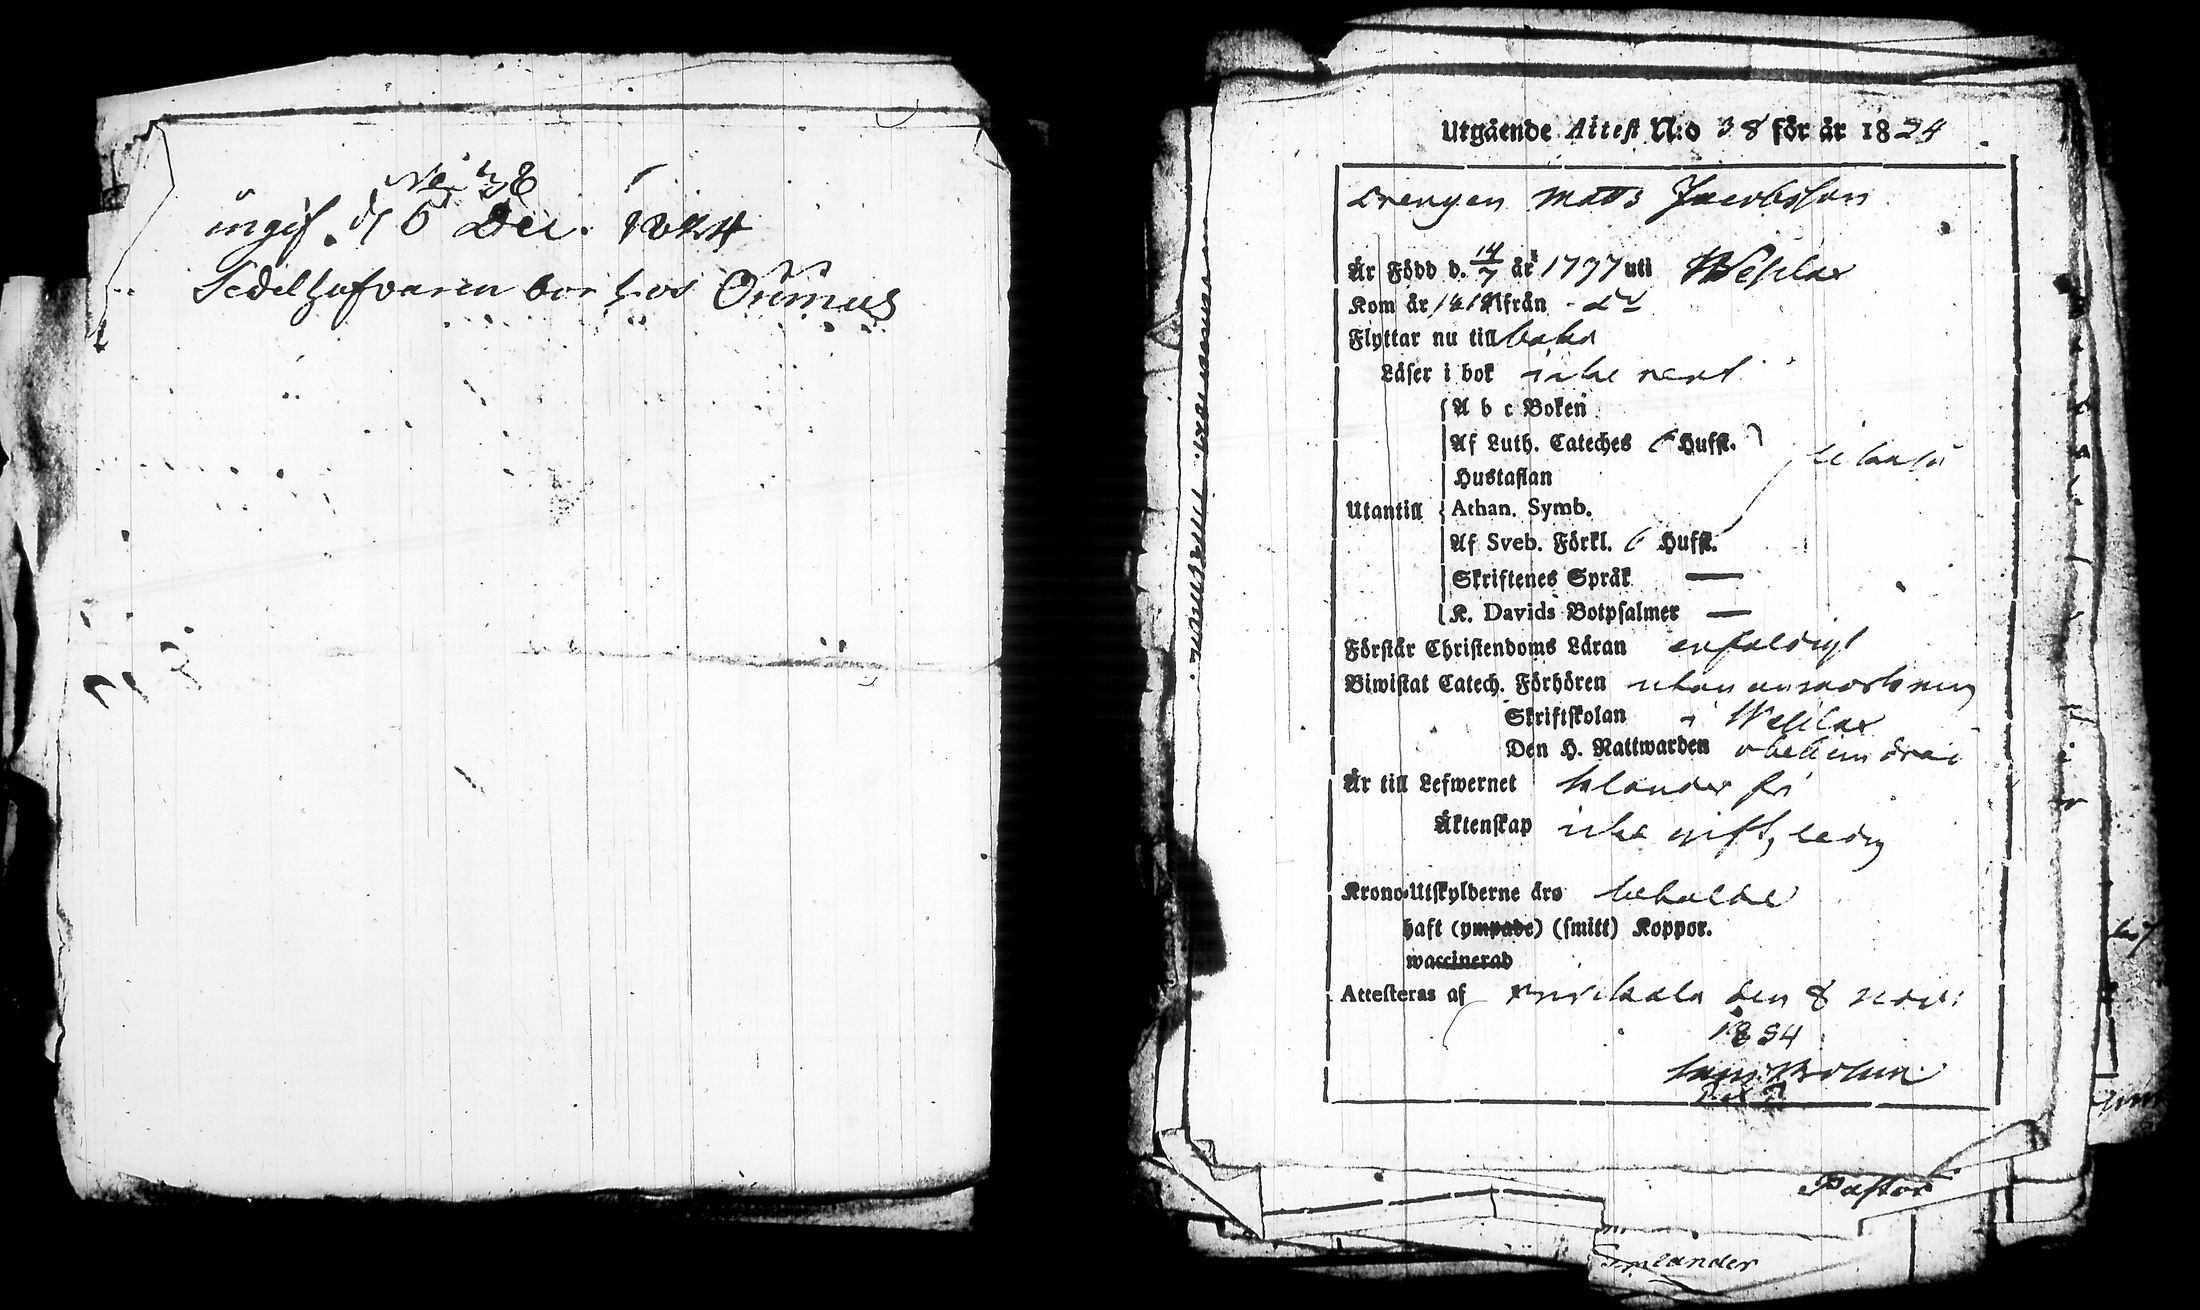 No 38
ingif. d 6 Dec. 1824
Sedelhafvaren bor hos Oumus
Utgående Attest N:o 38 för år 1824
Drengen Matts Jacobsson
Är Född d. 14/7 år 1797 uti Wesilax
Kom år från
Flyttar nu till baka
Läser i bok icke rent
A b c Boken
Af Luth. Cateches 6 Hufst.
Hustaflan
Utantill Athan. Symb.
Af Sveb. Förkl. 6 Hufst.
Skriftenes Språk —
K. Davids Botpsalmer —
Förstår Christendoms Läran enfaldigt
Biwistat Catech. Förhören utan anmärkning
Skriftskolan i Wesilax
Den H. Nattwarden obehindrad
Är till Lefwernet klander fri
Äktenskap icke gift, ledig
Krono-Utskylderne äro betalde
haft (ympade) (smitt) Koppor.
waccinerad
Attesteras af den 8 Nov:
1824
Pastor